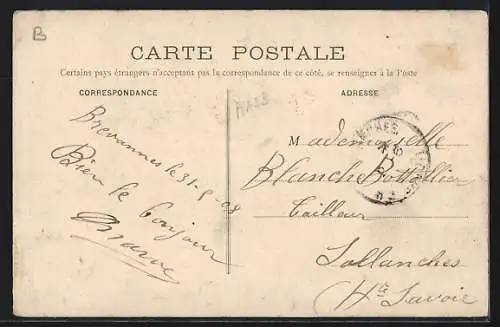 B
CARTE POSTALE
Certains pays étrangers n'acceptant pas la correspondance de ce côté, se renseigner à la Poste
CORRESPONDANCE
ADRESSE
Brevannes le 31-8-08
Bien le bonjour
Mademoiselle
Blanche Bottollier
Tailleur
Sallanches
Hte Savoie